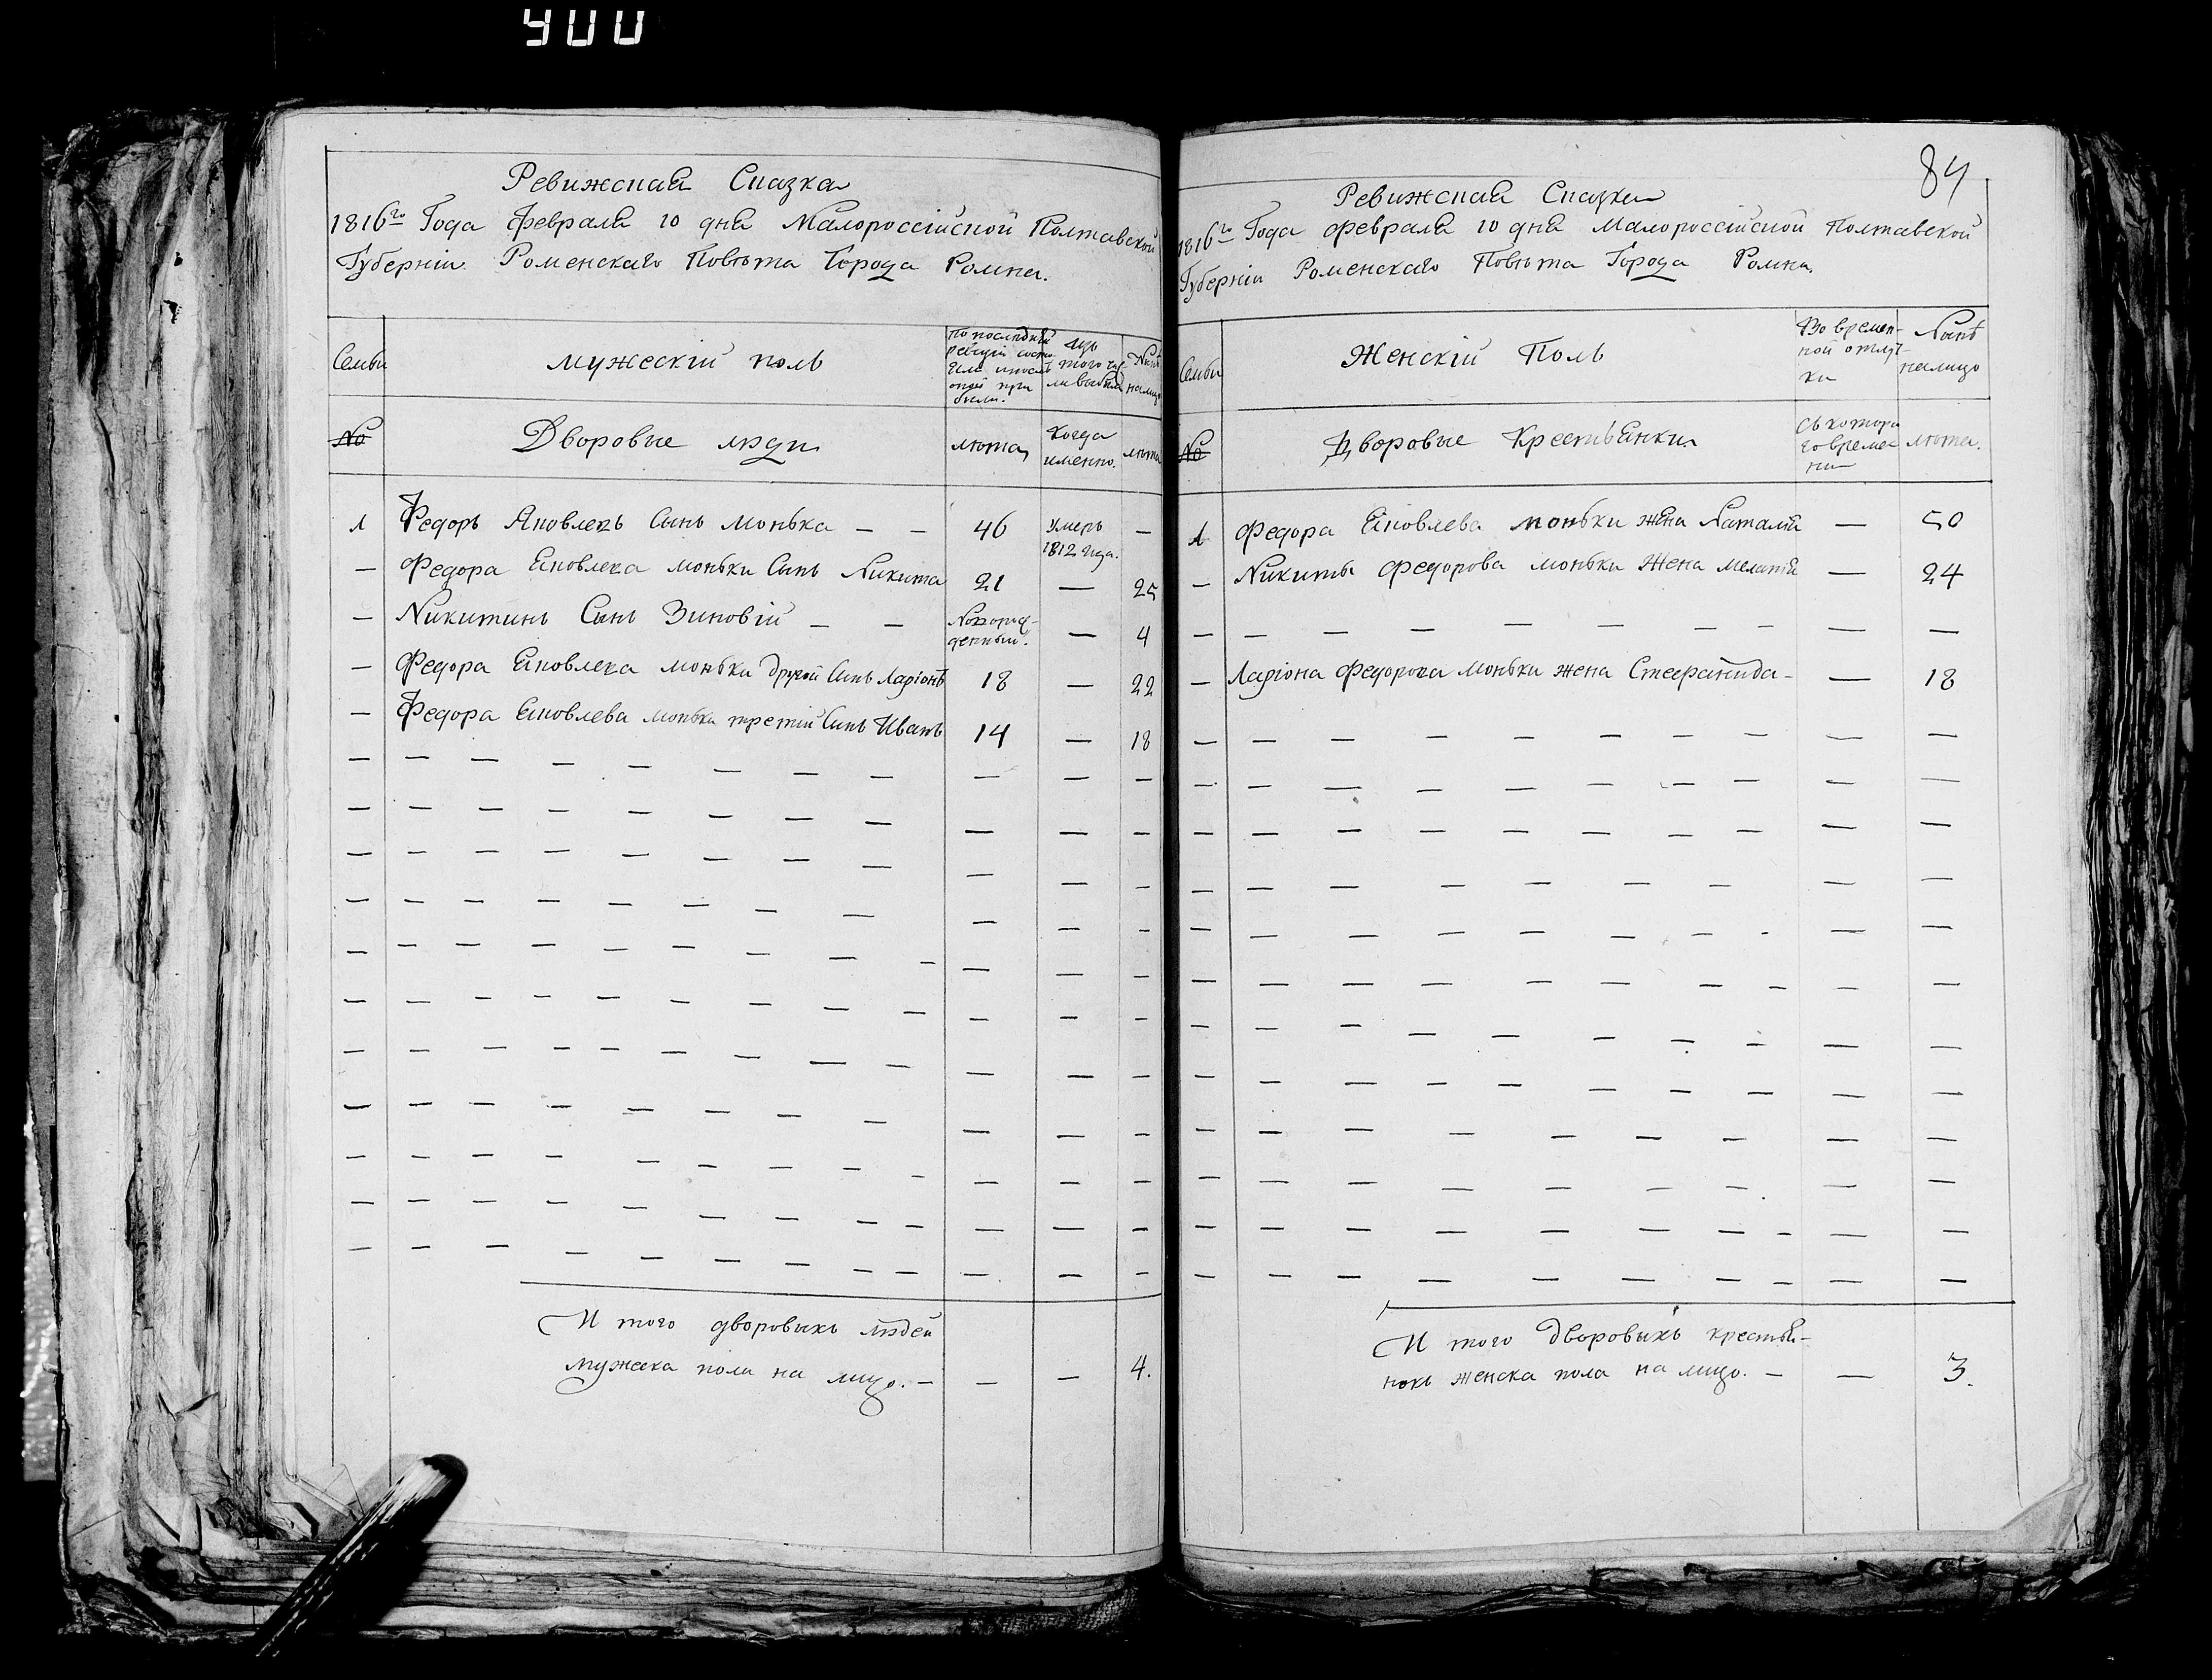 900
Ревижская Сказка
1816го Года Февраля 10 дня Малороссійской Полтавской
Губерніи Роменскаго Повѣта Города Ромна.
Семьи
мужескій полъ
По последней
ревизіи состо
яло и после
оной при
были.
Изъ
того чи
сла выбыло
Нынѣ
налицо
№
Дворовые люди
лѣта
Когда
именно.
лѣта
1 Федоръ Яковлевъ Сынъ Монька — — 46 умеръ
1812 года. —
— Федора Яковлева моньки Сынъ Никита 21 — 25
— Никитинъ Сынъ Зиновій — — Новорож-
денный. — 4
— Федора Яковлева моньки другой Сынъ Ларіонъ 18 — 22
— Федора Яковлева моньки третій Сынъ Иванъ 14 — 18
И того дворовыхъ людей
мужеска пола на лицо. — — — 4.
84
Ревижская Сказка
1816го Года февраля 10 дня Малороссійской Полтавской
Губерніи Роменскаго Повѣта Города Ромна.
Семьи
Женскій Полъ
Во времен-
ной отлуч-
ки
Нынѣ
налицо
№
Дворовые Крестьянки
Съ котора
го време
ни
лѣта.
1 Федора Яковлева моньки жена Наталія — 50
— Никиты Федорова моньки Жена Меланія — 24
— Ларіона Федорова Моньки жена Стефанида — — 18
И того Дворовыхъ крестья-
нокъ женска пола на лицо. — — 3.